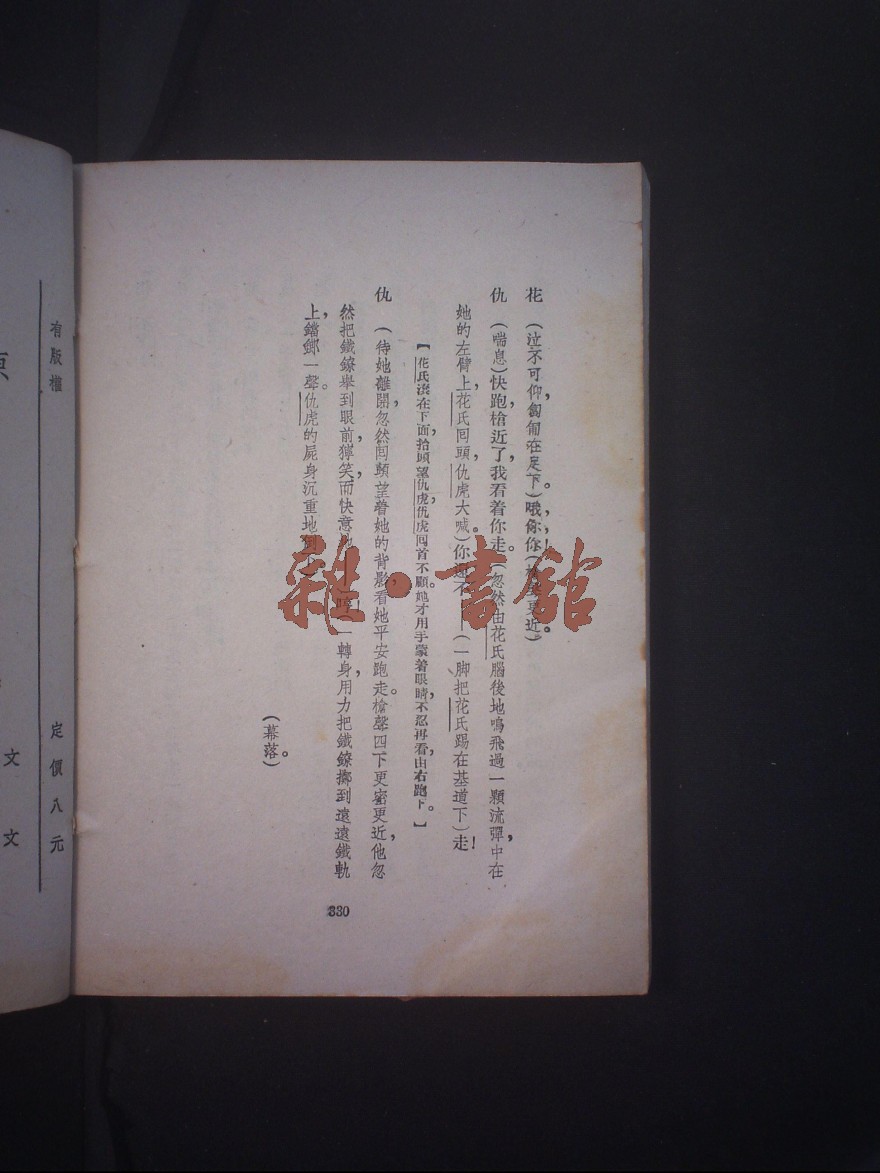 花 (泣不可仰，匍匐在足下)哦，你，你！(槍聲更近。)
仇 (喘息)快跑，槍近了，我看着你走。(忽然由花氏腦後地鳴飛過一顆流彈，中在
她的左臂上，花氏囘頭，仇虎大喊。)你還不——(一脚把花氏踢在基道下)走！
【花氏滾在下面，抬頭望仇虎，仇虎囘首不顧。她才用手蒙着眼睛，不忍再看，由右跑下。】
仇 (待她離開，忽然囘頭望着她的背影，看她平安跑走。槍聲四下更密更近，他忽
然把鐵鐐舉到眼前，獰笑，而快意地——哼！一轉身，用力把鐵鐐擲到遠遠鐵軌
上，鐺鎯一聲。仇虎的屍身沉重地倒下。
(幕落。)
330
有版權
定價八元
文
文
雜·書館